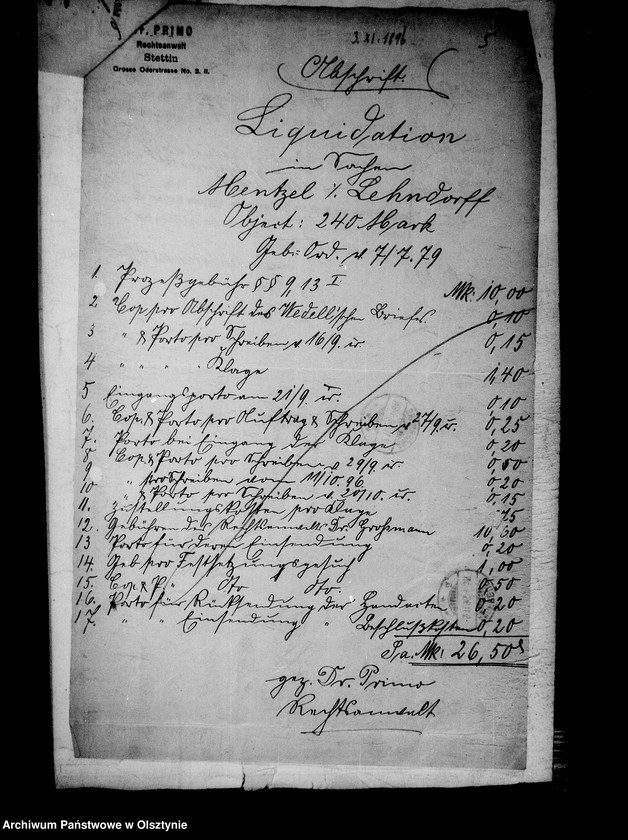 Dr. PRIMO
Rechtsanwalt
Stettin
Grosse Oderstrasse No. 3. II.
3. XI. 1896
5
Abschrift.
Liquidation
in Sachen
Mentzel ⁒ Lehndorff
Object: 240 Mark
Geb: Ord. v 7/7. 79
1. Prozeßgebühr §§ 9, 13 I. Mk: 10,00
2 Cop. pro Abschrift des Wedell'schen Briefes. 0,10
3 " & Porto pro Schreiben v 16/9. cr. 0,15
4 " " " " Klage 1,40
5 Eingangsporto am 21/9. cr. 0 10
6. Cop. & Porto pro Auftrag & Schreiben v 24/9. cr. 0,25
7. Porto bei Eingang der Klage 0,20
8 Cop. & Porto pro Schreiben v 29/9. cr. 0,50
9 " pro Schreiben vom 11/10. 96 0,20
10 " & Porto pro Schreiben v. 20/10. cr. 0,15
11. Zustellungskosten pro Klage 75
12. Gebühren des Rechtsanwalts Dr. Großmann 10,60
13 Porto für deren Einsendung 0,20
14. Geb. pro Festsetzungsgesuch 1,00
15. Cop. & P. " dto dto. 0,50
16. Porto für Rücksendung der Handacten 0,20
17. " " Einsendung " Beschlußkosten 0,20
Sa. Mk: 26,50
gez. Dr. Primo
Rechtsanwalt
Archiwum Państwowe w Olsztynie